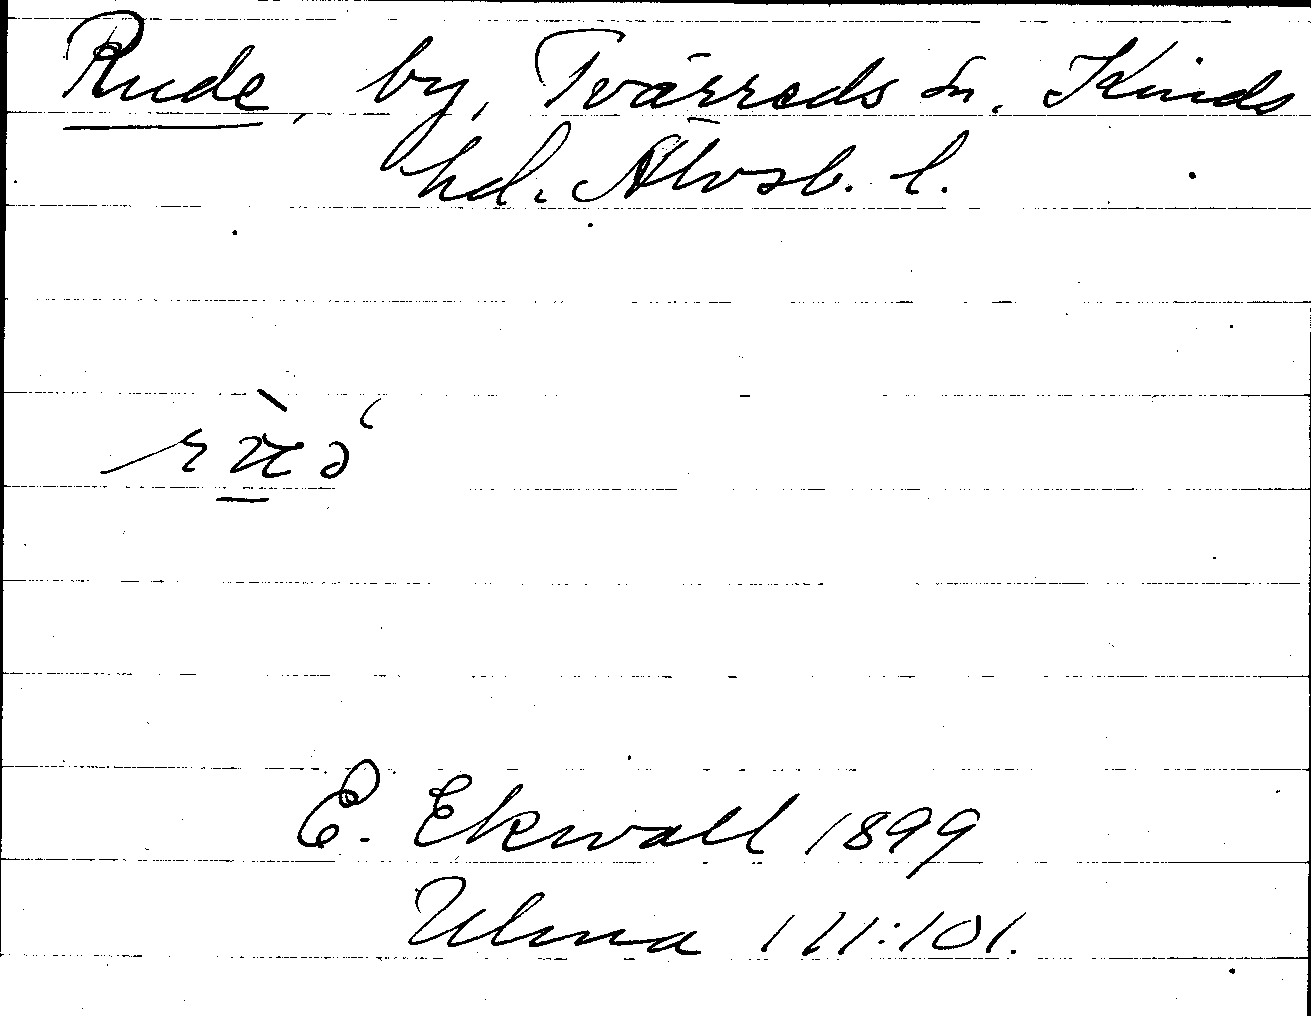 Rude, by, Tvärreds sn. Kinds
hd. Älvsb. l.
E. Ekwall 1899
Ulma 111:101.